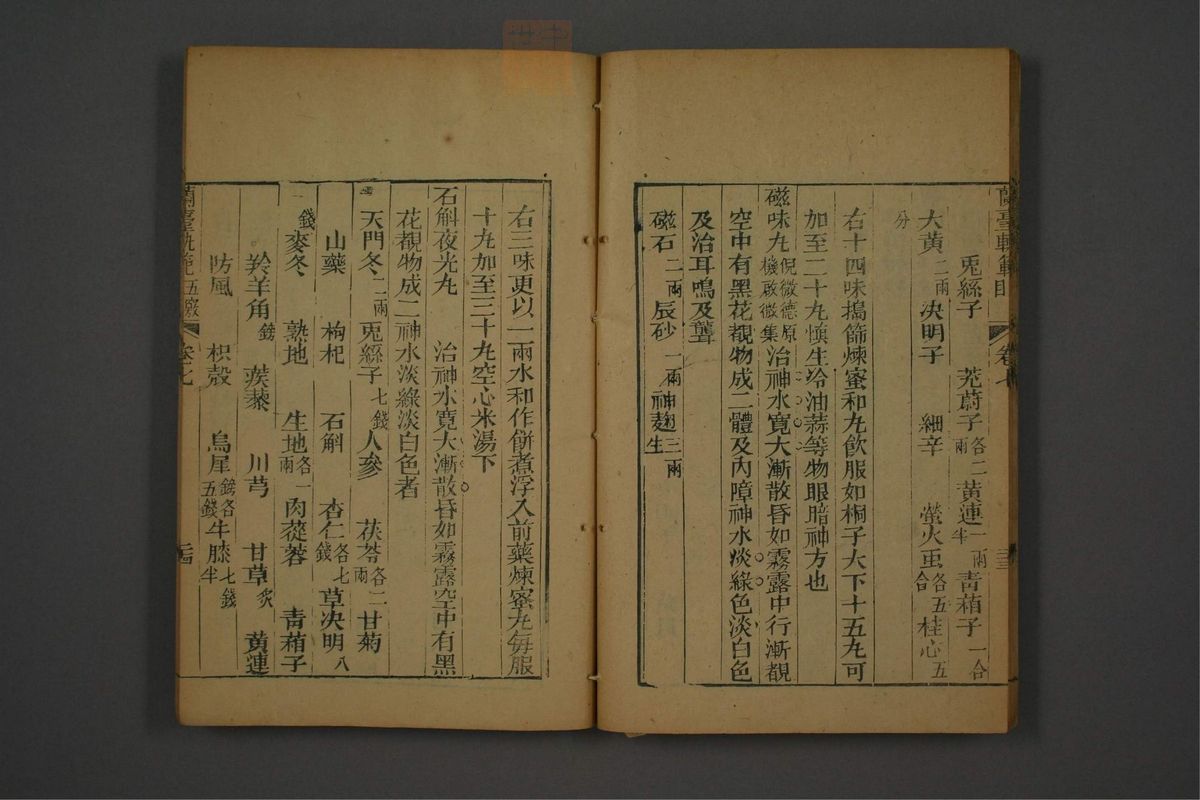 蘭臺軌範目 卷七 三三
兎絲子 茺蔚子各二兩 黃連一兩半 青葙子一合
大黃二兩 決明子 細辛 螢火虫各五合 桂心五
分
右十四味搗篩煉蜜和丸飲服如桐子大下十五丸可
加至二十丸慎生冷油蒜等物眼暗神方也
磁味丸倪微德原機啟微集治神水寬大漸散昏如霧露中行漸覩
空中有黑花覩物成二體及內障神水淡綠色淡白色
及治耳鳴及聾
磁石二兩 辰砂一兩 神麹三兩生
右三味更以一兩水和作餅煮浮入前藥煉蜜丸每服
十丸加至三十丸空心米湯下
石斛夜光丸 治神水寬大漸散昏如霧露空中有黑
花覩物成二神水淡綠淡白色者
天門冬二兩 兎絲子七錢 人參 茯苓各二兩 甘菊
山藥 枸杞 石斛 杏仁各七錢 草決明八
錢 麥冬 熟地 生地各一兩 肉蓯蓉 青葙子
羚羊角鎊 蒺藜 川芎 甘草炙 黃連
防風 枳殼 烏犀鎊各五錢 牛膝七錢半
蘭臺軌範 卷七 三四